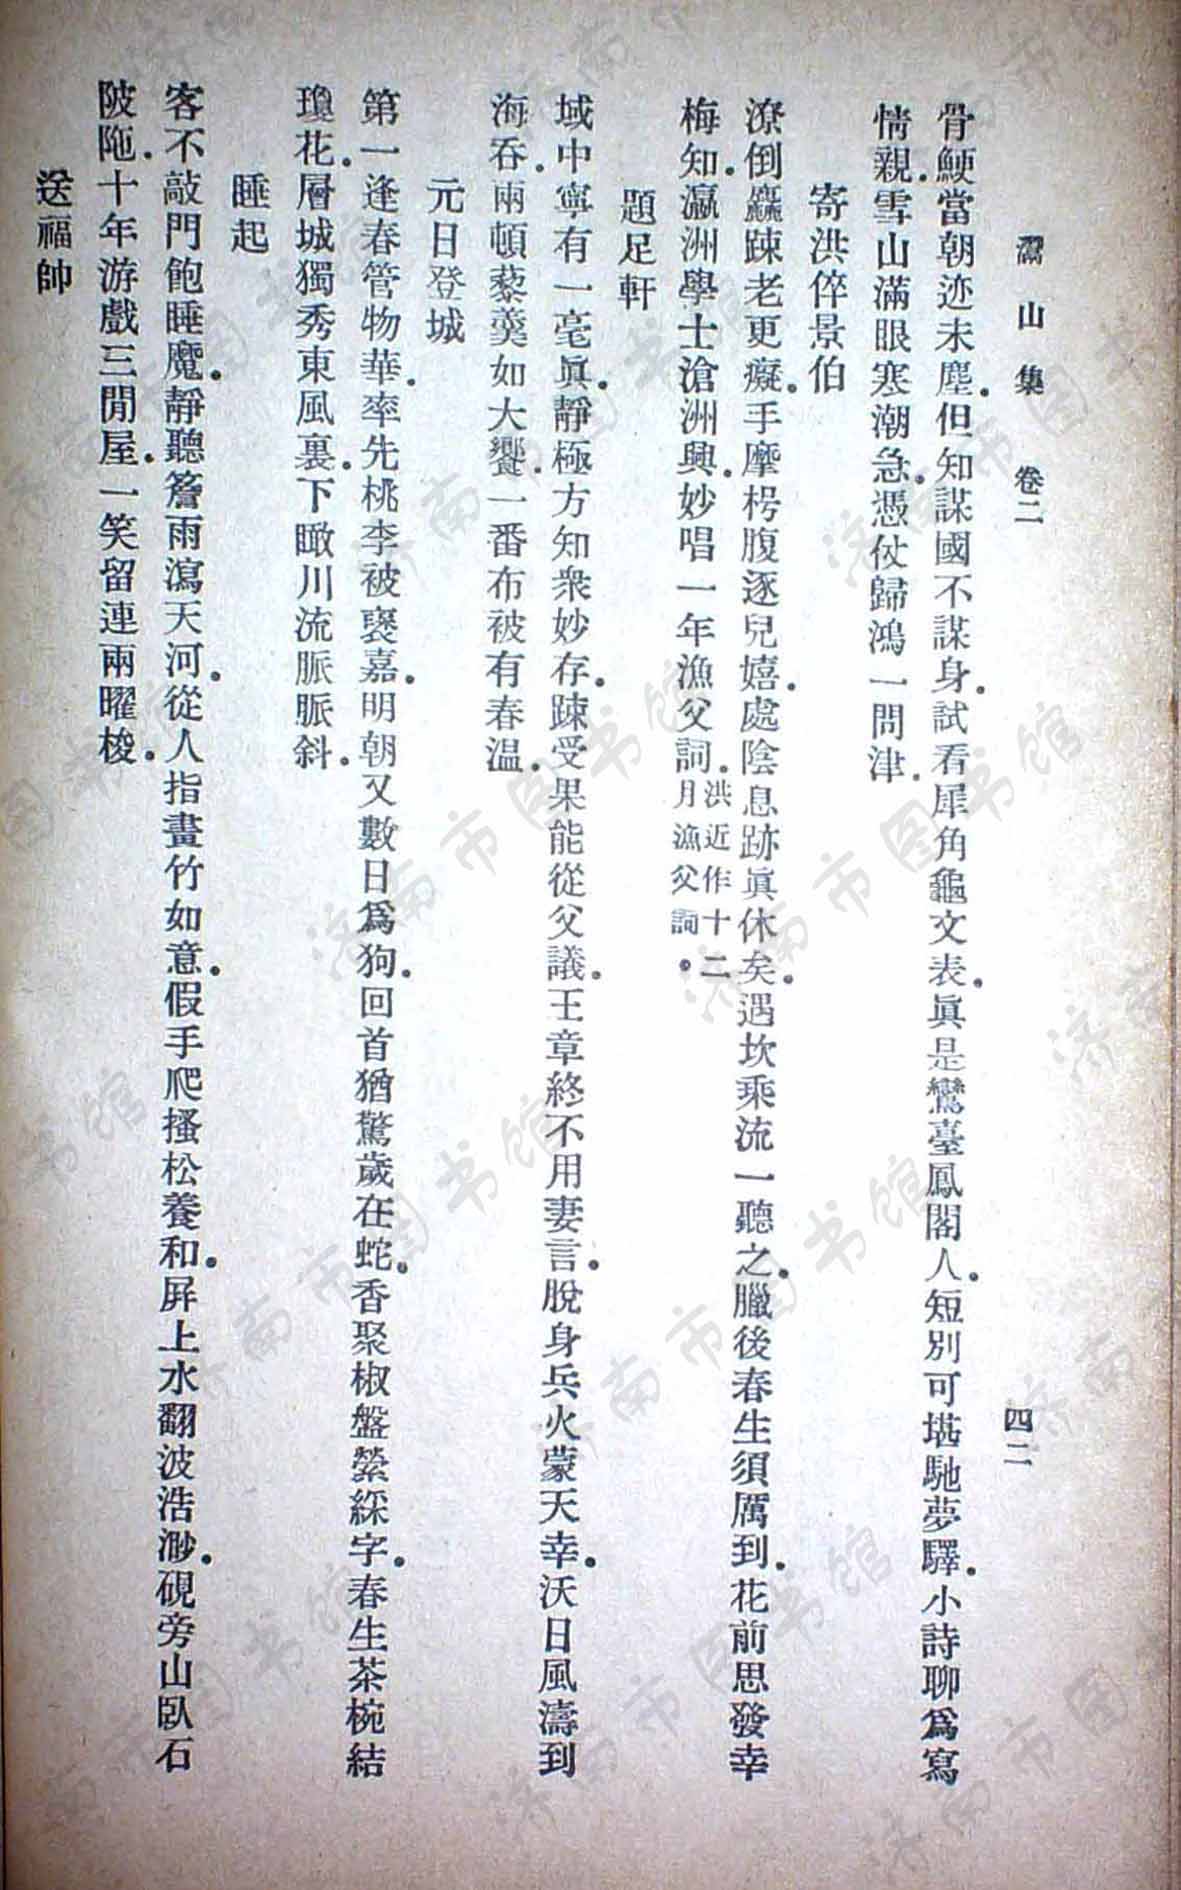 灊山集　卷二　四二
骨鯁當朝迹未塵．但知謀國不謀身．試看犀角龜文表．眞是鸞臺鳳閣人．短別可堪馳夢驛．小詩聊爲寫
情親．雪山滿眼寒潮急．憑仗歸鴻一問津．
寄洪倅景伯
潦倒麤踈老更癡．手摩枵腹逐兒嬉．處陰息跡眞休矣．遇坎乘流一聽之．臘後春生須厲到．花前思發幸
梅知．瀛洲學士滄洲興．妙唱一年漁父詞．洪近作十二月漁父詞．
題足軒
域中寧有一毫眞．靜極方知衆妙存．踈受果能從父議．王章終不用妻言．脫身兵火蒙天幸．沃日風濤到
海吞．兩頓藜羹如大饗．一番布被有春溫．
元日登城
第一逢春管物華．率先桃李被褒嘉．明朝又數日爲狗．回首猶驚歲在蛇．香聚椒盤縈綵字．春生茶椀結
瓊花．層城獨秀東風裏．下瞰川流脈脈斜．
睡起
客不敲門飽睡魔．靜聽簷雨瀉天河．從人指畫竹如意．假手爬搔松養和．屛上水翻波浩渺．硯旁山臥石
陂陁．十年游戲三閒屋．一笑留連兩曜梭．
送福帥
济南市图书馆